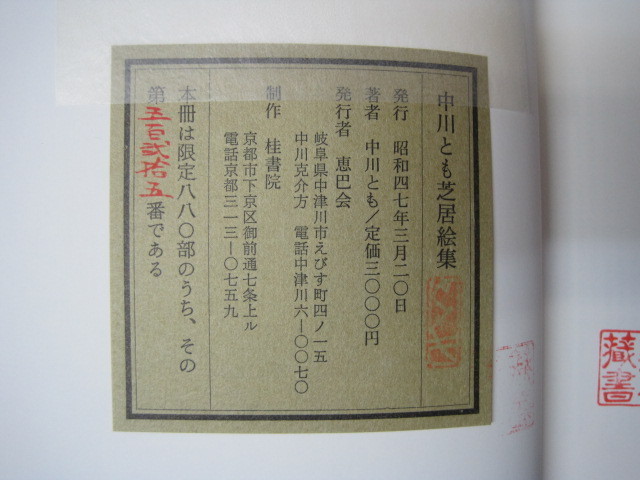 中川とも芝居絵集
発行　昭和四七年三月二〇日
著者　中川とも／定価三〇〇〇円
発行者　恵巴会
岐阜県中津川市えびす町四ノ一五
中川克介方　電話中津川六―〇〇七〇
制作　桂書院
京都市下京区御前通七条上ル
電話京都三一三―〇七五九
本冊は限定八八〇部のうち、その
第五百弐拾五番である
蔵書